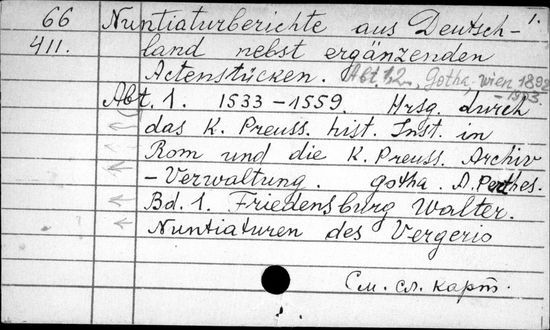 1.
66 Nuntiaturberichte aus Deutsch-
411. land nebst ergänzenden
Actenstücken. Abt. 1.2. Gotha, Wien, 1892
-1953.
Abt. 1. 1533-1559. Hrsg. durch
das K. Preuss. hist. Inst. in
Rom und die K. Preuss. Archiv
-Verwaltung. Gotha. A. Perthes.
Bd. 1. Friedensburg Walter.
Nuntiaturen des Vergerio
См. сл. карт.